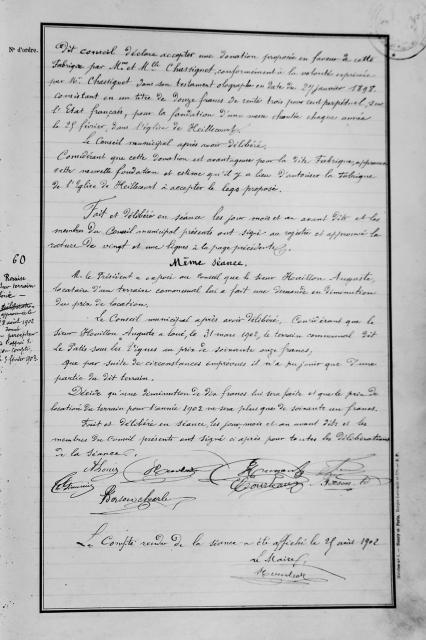 N° d'ordre.
Dit conseil déclare accepter une donation proposée en faveur de cette
Fabrique par Mme et Mlle Chassignet, conformément à la volonté exprimée
par Mr Chassignet dans son testament olographe en date du 27 janvier 1898.
consistant en un titre de douze francs de rente trois pour cent perpétuel, sur
l'Etat français, pour la fondation d'une messe chantée chaque année
le 25 février, dans l'église de Heillecourt.
Le Conseil municipal après avoir délibéré,
Considérant que cette donation est avantageuse pour la dite Fabrique, approuve
cette nouvelle fondation et estime qu'il y a lieu d'autoriser la Fabrique
de l'Eglise de Heillecourt à accepter le legs proposé.
Fait et délibéré en séance les jour mois et an avant dits et les
membres du Conseil municipal présents ont signé au registre et approuvé la
rature de vingt et une lignes à la page précédente.
Même séance.
60
Remise
sur terrain
8 août 1902
percepteur
M. le Président a exposé au Conseil que le sieur Houillon Auguste,
locataire d'un terrain communal lui a fait une demande en diminution
du prix de location.
Le Conseil municipal après avoir délibéré, Considérant que le
sieur Houillon Auguste a loué, le 31 mars 1902, le terrain communal dit
le Patis sous les Vignes au prix de soixante onze francs,
que par suite de circonstances imprévues il n'a pu jouir que d'une
partie du dit terrain.
Décide qu'une diminution de dix francs lui sera faite et que le prix de
location du terrain pour l'année 1902 ne sera plus que de soixante un francs.
Fait et délibéré en séance, les jour, mois et an avant dits et les
membres du Conseil présents ont signé ci après pour toutes les délibérations
de la séance.
Le Compte rendu de la séance a été affiché le 25 août 1902
Le Maire,